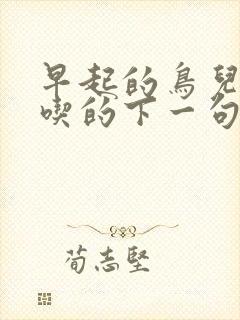 早起的鳥兒
喫的下一句
荀志堅